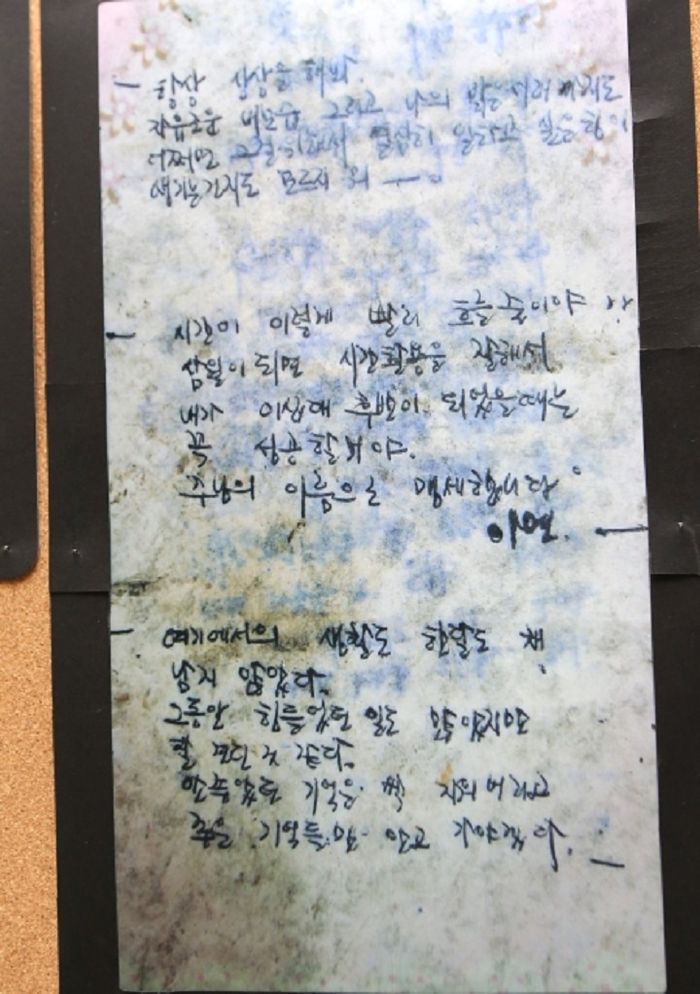 항상 상상을 해봐.
자유로운 내모습 그리고 나의 밝은 미래까지도
어쩌면 그걸 위해서 열심히 일하고 싶은 힘이
생기는건지도 모르지 뭐 —.
시간이 이렇게 빨리 흐를 줄이야
삼일이 되면 시간활용을 잘해서
내가 이십대 후반이 되었을때는
꼭 성공할거야.
주님의 이름으로 맹세합니다.
여기에서의 생활도 한달도 채
남지 않았다.
그동안 힘들었던 일도 많았지만
잘 견딘 것 같다.
안좋았던 기억은 싹 지워버리고
좋은 기억들만 안고 가야겠다.